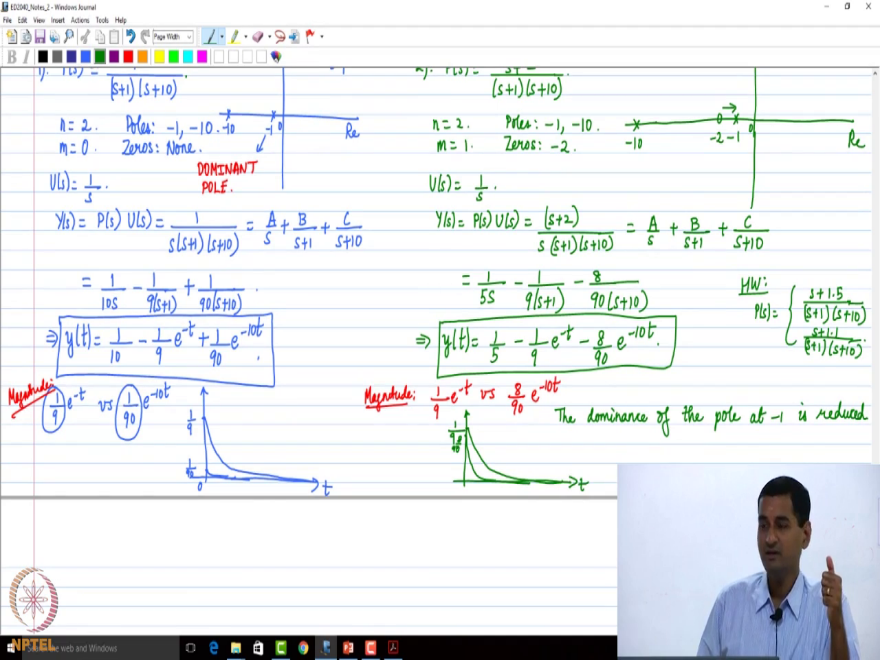 ED2040_Notes_2 - Windows Journal
File Edit View Insert Actions Tools Help
Page Width
B I
(s+1)(s+10)
n=2. Poles: -1, -10.
m=0. Zeros: None.
-10 -1 0 Re
DOMINANT
POLE.
U(s)= 1/s.
Y(s)= P(s) U(s)= 1/(s(s+1)(s+10)) = A/s + B/(s+1) + C/(s+10)
= 1/(10s) - 1/(9(s+1)) + 1/(90(s+10)).
⇒ y(t)= 1/10 - 1/9 e^-t + 1/90 e^-10t.
Magnitude: 1/9 e^-t vs 1/90 e^-10t
1/9
1/90
0 t
(s+1)(s+10)
n=2. Poles: -1, -10.
m=1. Zeros: -2.
-10 -2 -1 0 Re
U(s)= 1/s.
Y(s)= P(s) U(s)= (s+2)/(s(s+1)(s+10)) = A/s + B/(s+1) + C/(s+10)
= 1/(5s) - 1/(9(s+1)) - 8/(90(s+10))
⇒ y(t)= 1/5 - 1/9 e^-t - 8/90 e^-10t.
HW:
P(s)= { (s+1.5)/((s+1)(s+10))
(s+1.1)/((s+1)(s+10)).
Magnitude: 1/9 e^-t vs 8/90 e^-10t
1/9
8/90
t
The dominance of the pole at -1 is reduced
NPTEL
the web and Windows